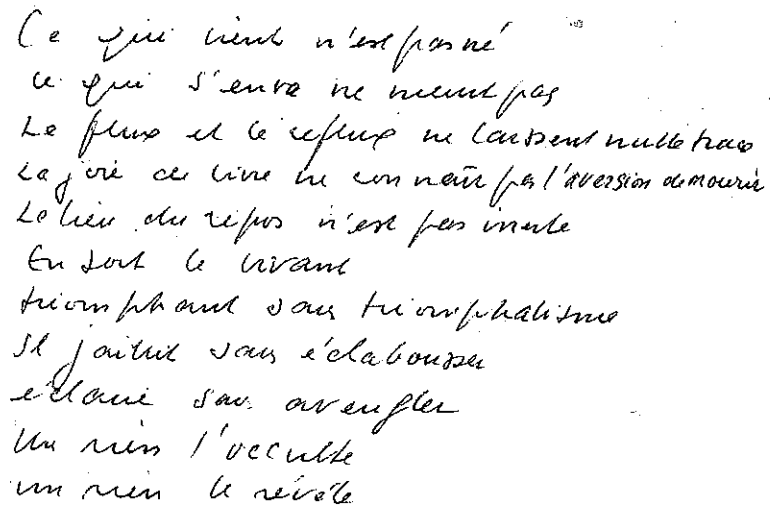 Ce qui vient n'est pas né
ce qui s'en va ne meurt pas
Le flux et le reflux ne laissent nulle trace
La joie de vivre ne connaît pas l'aversion de mourir
Le lieu du repos n'est pas inerte
En sort le vivant
triomphant sans triomphalisme
Il jaillit sans éclabousser
éclaire sans aveugler
Un rien l'occulte
un rien le révèle